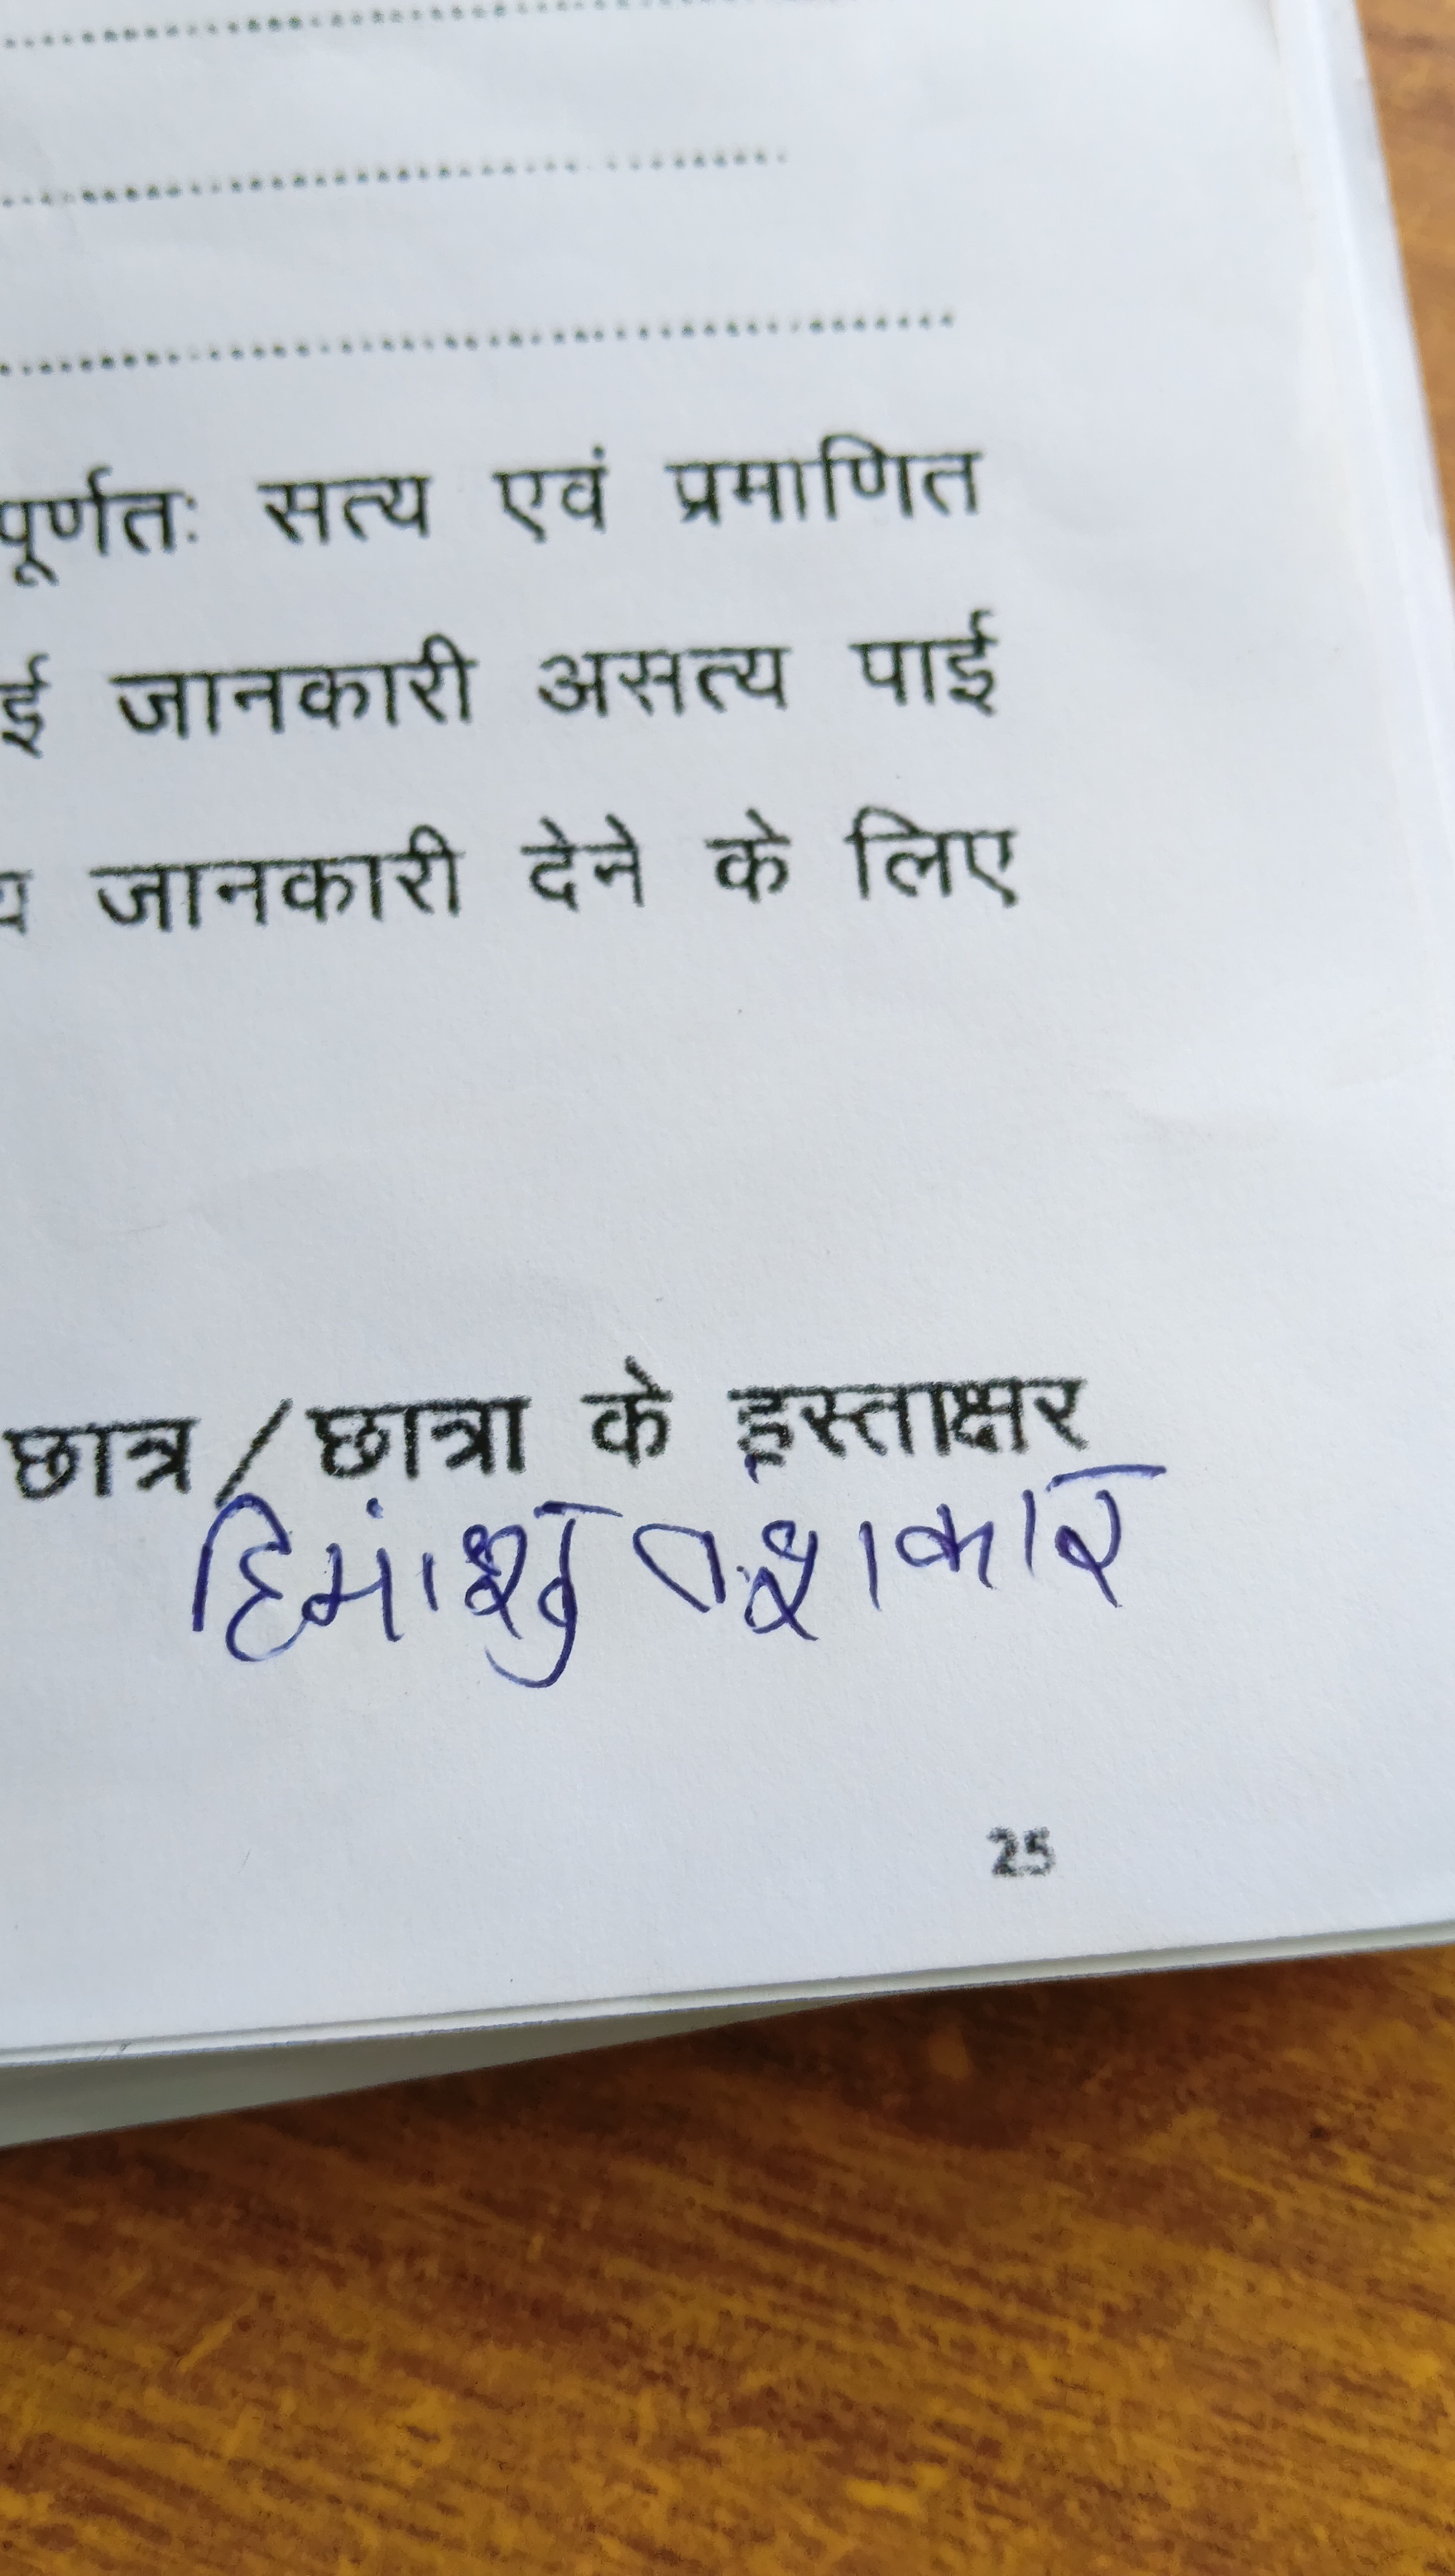 पूर्णतः सत्य एवं प्रमाणित
ई जानकारी असत्य पाई
य जानकारी देने के लिए
छात्र/छात्रा के हस्ताक्षर
हिमांशु
25